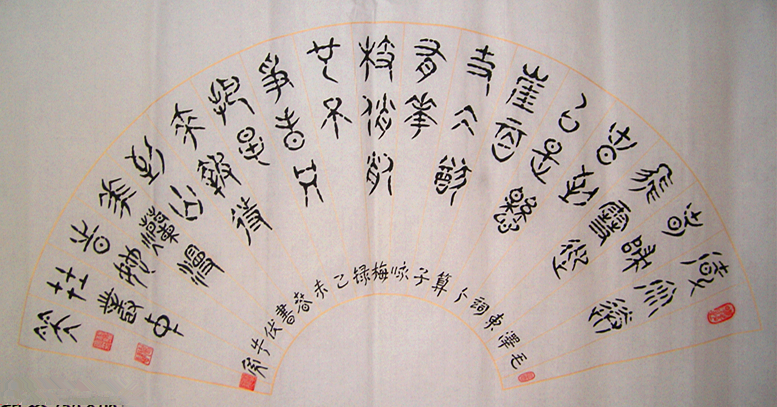 風雨送
春歸
飛雪迎
春到
已是懸
崖百
丈冰猶
有花
枝俏俏
也不
爭春只
把春
來報待
到山
花爛漫
時她
在叢中
笑
毛澤東詞卜算子咏梅録乙未春書伏牛